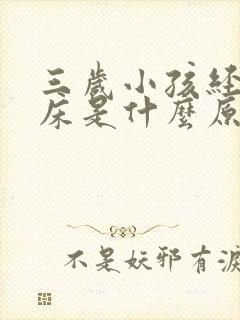 三歲小孩經
床是什麼原
不是妖邪有淚